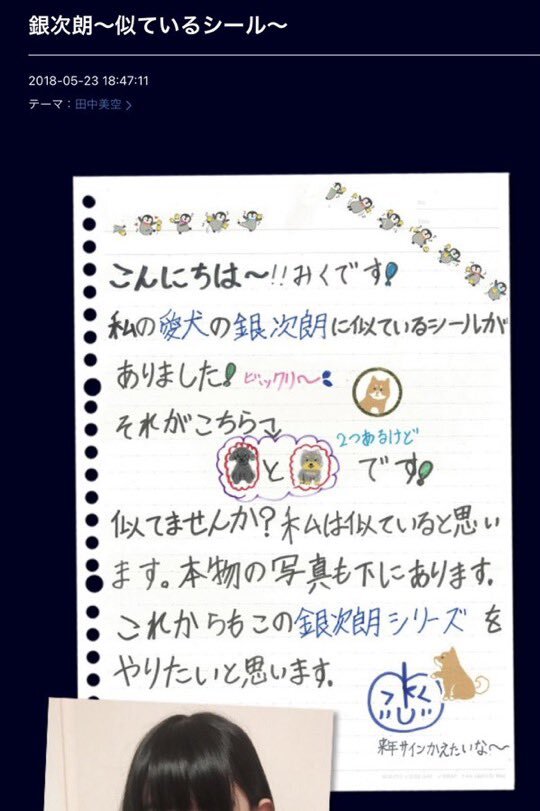 銀次朗〜似ているシール〜
2018-05-23 18:47:11
テーマ：田中美空
こんにちは〜!!みくです!
私の愛犬の銀次朗に似ているシールが
ありました!ビックリ〜
それがこちら→
2つあるけど
と です!
似てませんか?私は似ていると思い
ます。本物の写真も下にあります.
これからもこの銀次朗シリーズを
やりたいと思います.
来年サインかえたいな〜